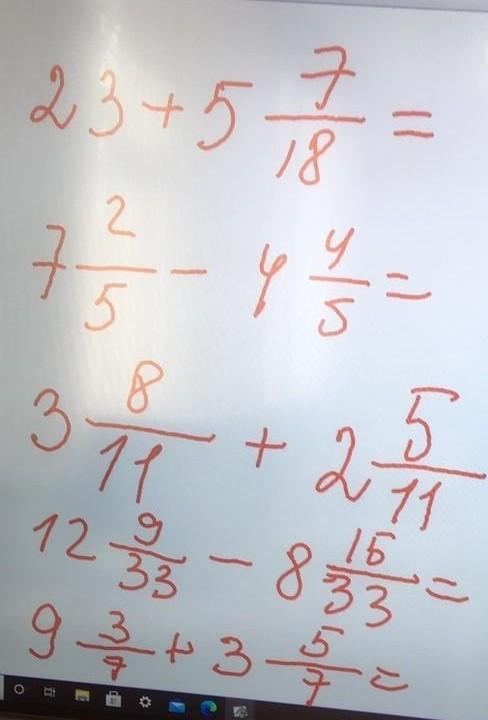 23 + 5 7/18 =
7 2/5 - 4 4/5 =
3 8/11 + 2 5/11
12 9/33 - 8 15/33 =
9 3/7 + 3 5/7 =